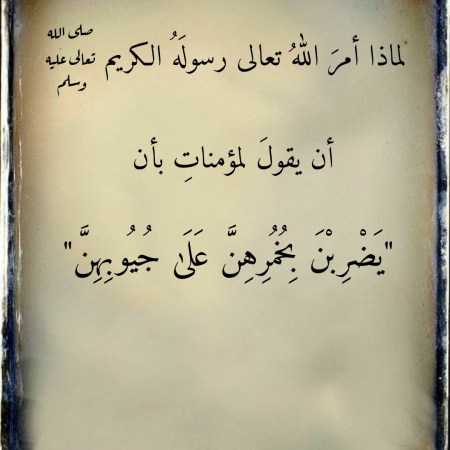 لماذا أمرَ اللهُ تعالى رسولَهُ الكريم صلى الله تعالى عليه وسلم
أن يقولَ لمؤمناتِ بأن
"يَضْرِبْنَ بِخُمُرِهِنَّ عَلَىٰ جُيُوبِهِنَّ"